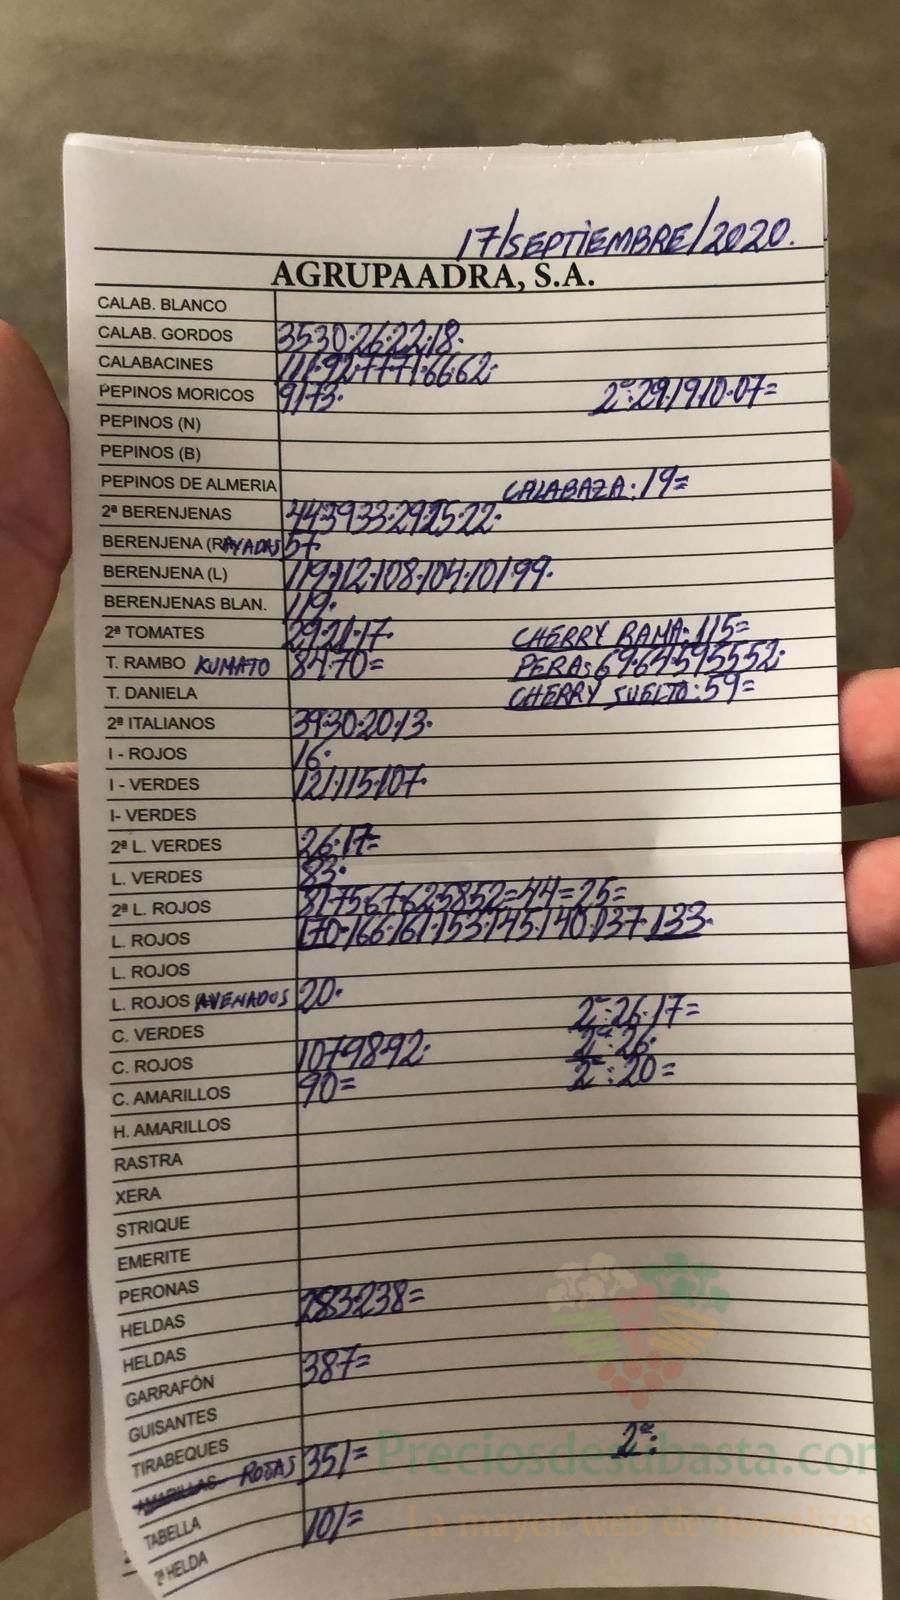 17/SEPTIEMBRE/2020.
AGRUPAADRA, S.A.
CALAB. BLANCO
CALAB. GORDOS 35·30·26·22·18·
CALABACINES 111·92·77·71·66·62·
PEPINOS MORICOS 91·73· 2ª:29·19·10·07=
PEPINOS (N)
PEPINOS (B)
PEPINOS DE ALMERIA CALABAZA: 19=
2ª BERENJENAS 44·39·33·29·25·22·
BERENJENA (RAYADAS 57·
BERENJENA (L) 119·112·108·104·101·99·
BERENJENAS BLAN. 119·
2ª TOMATES 29·21·17· CHERRY RAMA: 115=
T. RAMBO KUMATO 84·70= PERA: 69·64·59·55·52·
T. DANIELA CHERRY SUELTO: 59=
2ª ITALIANOS 39·30·20·13·
I - ROJOS 16·
I - VERDES 121·115·107·
I- VERDES
2ª L. VERDES 26·17=
L. VERDES 83·
2ª L. ROJOS 81·75·67·62·58·52=44=25=
L. ROJOS 170·166·161·153·145·140·137·133·
L. ROJOS
L. ROJOS AVENADOS 20·
C. VERDES 2ª:26·17=
C. ROJOS 107·98·92· 2ª:26·
C. AMARILLOS 90= 2ª:20=
H. AMARILLOS
RASTRA
XERA
STRIQUE
EMERITE
PERONAS
HELDAS 283·238=
HELDAS
GARRAFÓN 387=
GUISANTES
TIRABEQUES 2ª:
AMARILLAS ROJAS 351=
TABELLA
2ª HELDA 101=
Preciosdesubasta.com
La mayor web de hortalizas